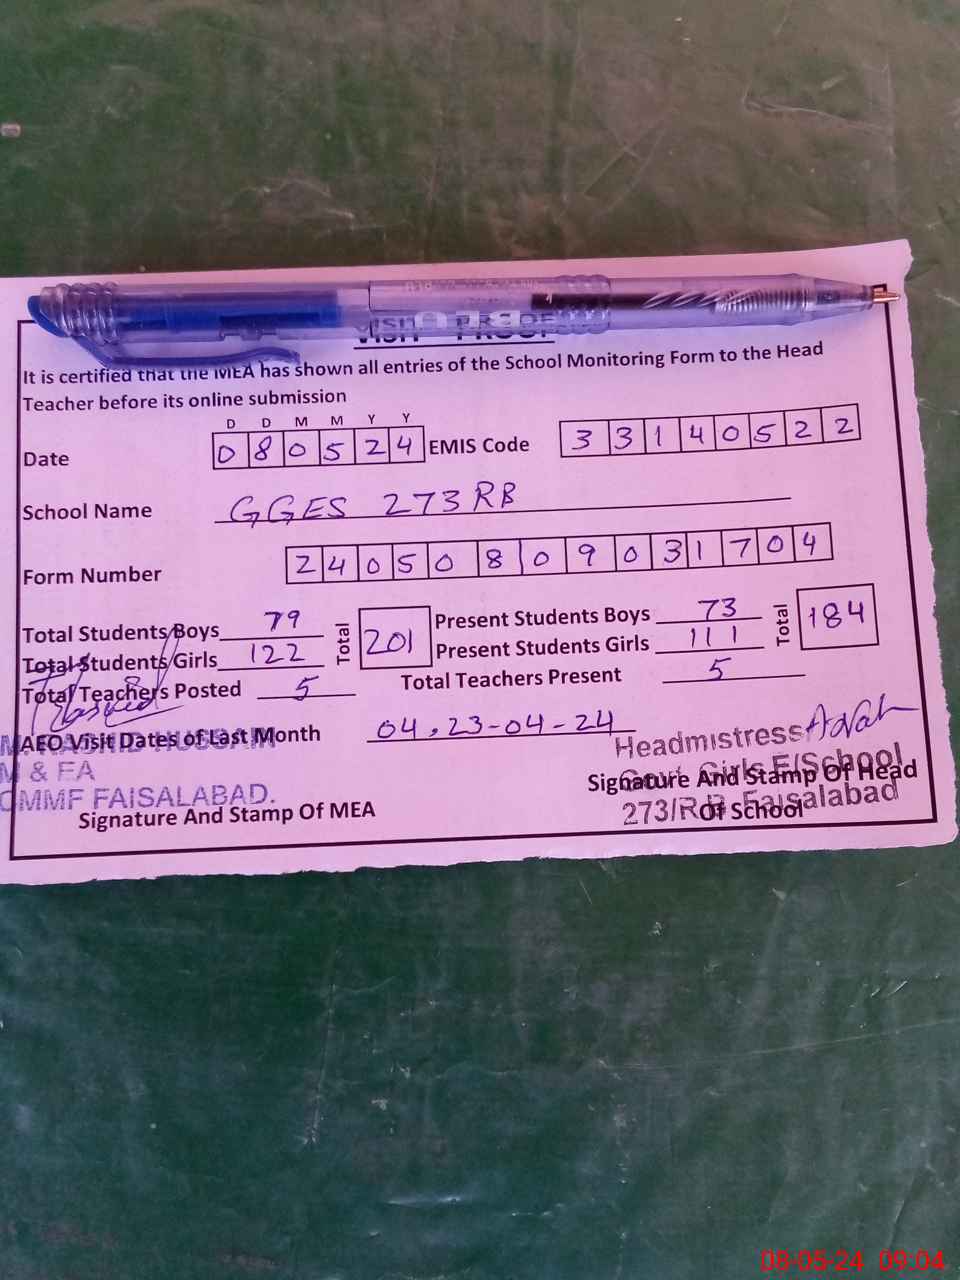 VISIT PROOF
It is certified that the MEA has shown all entries of the School Monitoring Form to the Head
Teacher before its online submission
D D M M Y Y
Date 080524 EMIS Code 33140522
School Name GGES 273 RB
Form Number 24050809031704
Total Students Boys 79 Total 201 Present Students Boys 73 Total 184
Total Students Girls 122 Present Students Girls 111
Total Teachers Posted 5 Total Teachers Present 5
AEO Visit Dates of Last Month 04, 23-04-24
HUSSAIN
M & EA
CMMF FAISALABAD.
Signature And Stamp Of MEA
Headmistress
Govt. Girls E/School
273/R.B. Faisalabad
Signature And Stamp Of Head
Of School
08-05-24 09:04